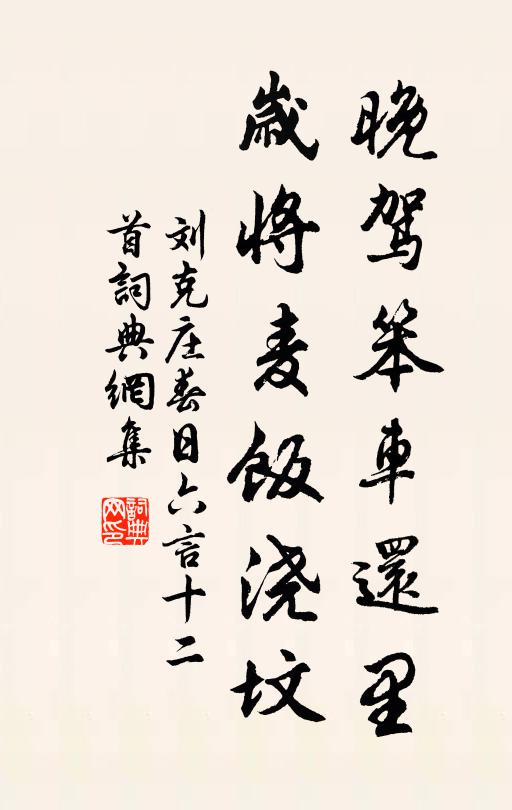 晚驾笨車還里
歲將麦飯浇坟
刘克庄春日六言十二
首詞典網集
詞典
网印